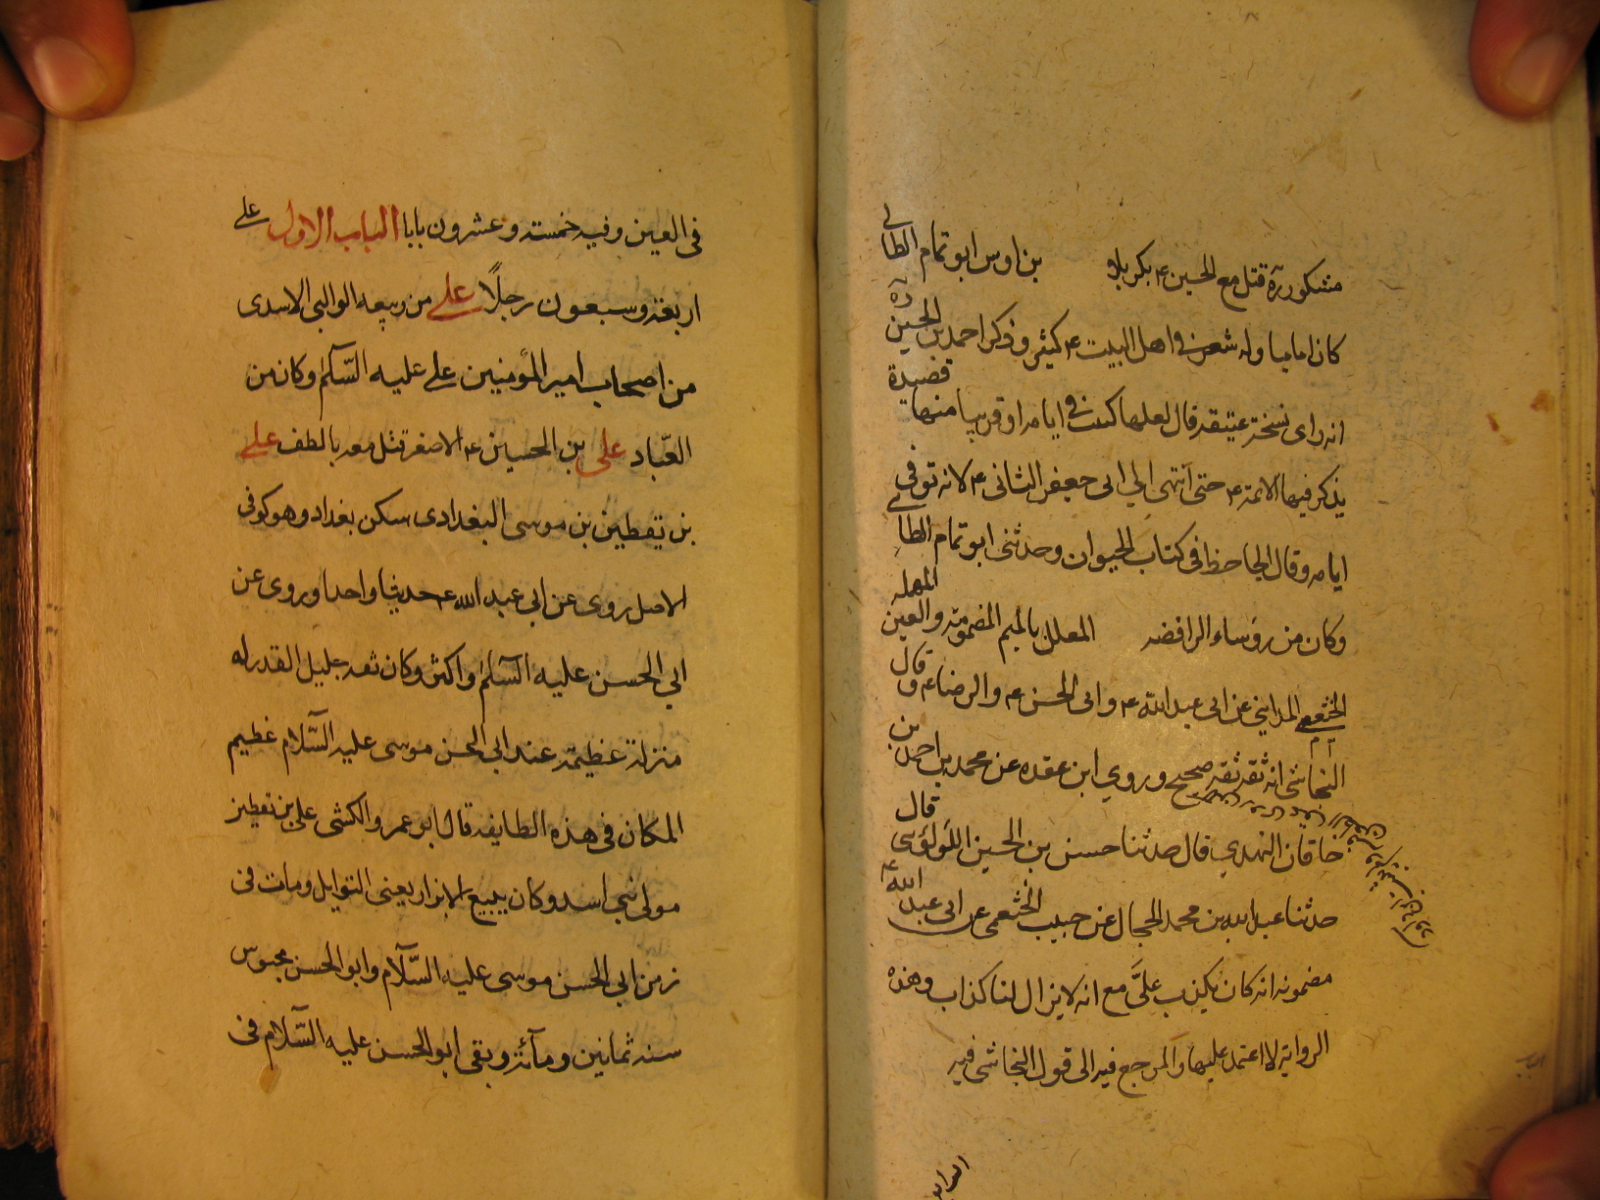 مشكور ره قتل مع الحسين ع بكربلا بن اوس ابو تمام الطائي
كان اماميا وله شعر فى اهل البيت ع كثير وذكر احمد بن الحسين ره
انه راى نسخة عتيقه قال لعلها كتبت فى ايامه او قريبا منها قصيدة
يذكر فيها الائمة ع حتى انتهى الى ابى جعفر الثانى ع لانه توفى في
ايامه وقال الجاحظ فى كتاب الحيوان وحدثنى ابو تمام الطا
وكان من روساء الرافضه المعلل بالميم المضمومة والعين المهمله
الخثعمي المدايني عن ابى عبد الله ع وابى الحسن ع والرضا ع وقال
النجاشى انه ثقه ثقه صحيح وروي ابن عقده عن محمد بن احمد بن
خاقان النهدي قال حدثنا حسن بن الحسين اللولوى قال
حدثنا عبد الله بن محمد الحجال عن حبيب الخثعمى عن ابى عبد الله ع
مضمونه انه كان يكذب علىّ مع انه لا يزال لنا كذاب وهذه
الرواية لا اعتمد عليها والمرجع فيه الى قول النجاشى فيه
الباب
فى العين وفيه خمسة وعشرون بابا الباب الاول على
اربعة وسبعون رجلًا على من ربيعه الوالبى الاسدى
من اصحاب امير المؤمنين على عليه السّلام وكان من
العبّاد على بن الحسين ع الاصغر قتل معه بالطف على
بن يقطين بن موسى البغدادى سكن بغداد وهو كوفى
الاصل روى عن ابى عبد الله ع حديثا واحدا وروى عن
ابي الحسن عليه السّلام واكثر وكان ثقه جليل القدر له
منزلة عظيمة عند ابى الحسن موسى عليه السّلام عظيم
المكان فى هذه الطايفه قال ابو عمرو الكشى على بن يقطين
مولى بنى اسد وكان يبيع الابزار يعنى التوابل ومات فى
زمن ابي الحسن موسى عليه السّلام وابو الحسن محبوس
سنه ثمانين ومأئة وبقى ابو الحسن عليه السّلام فى